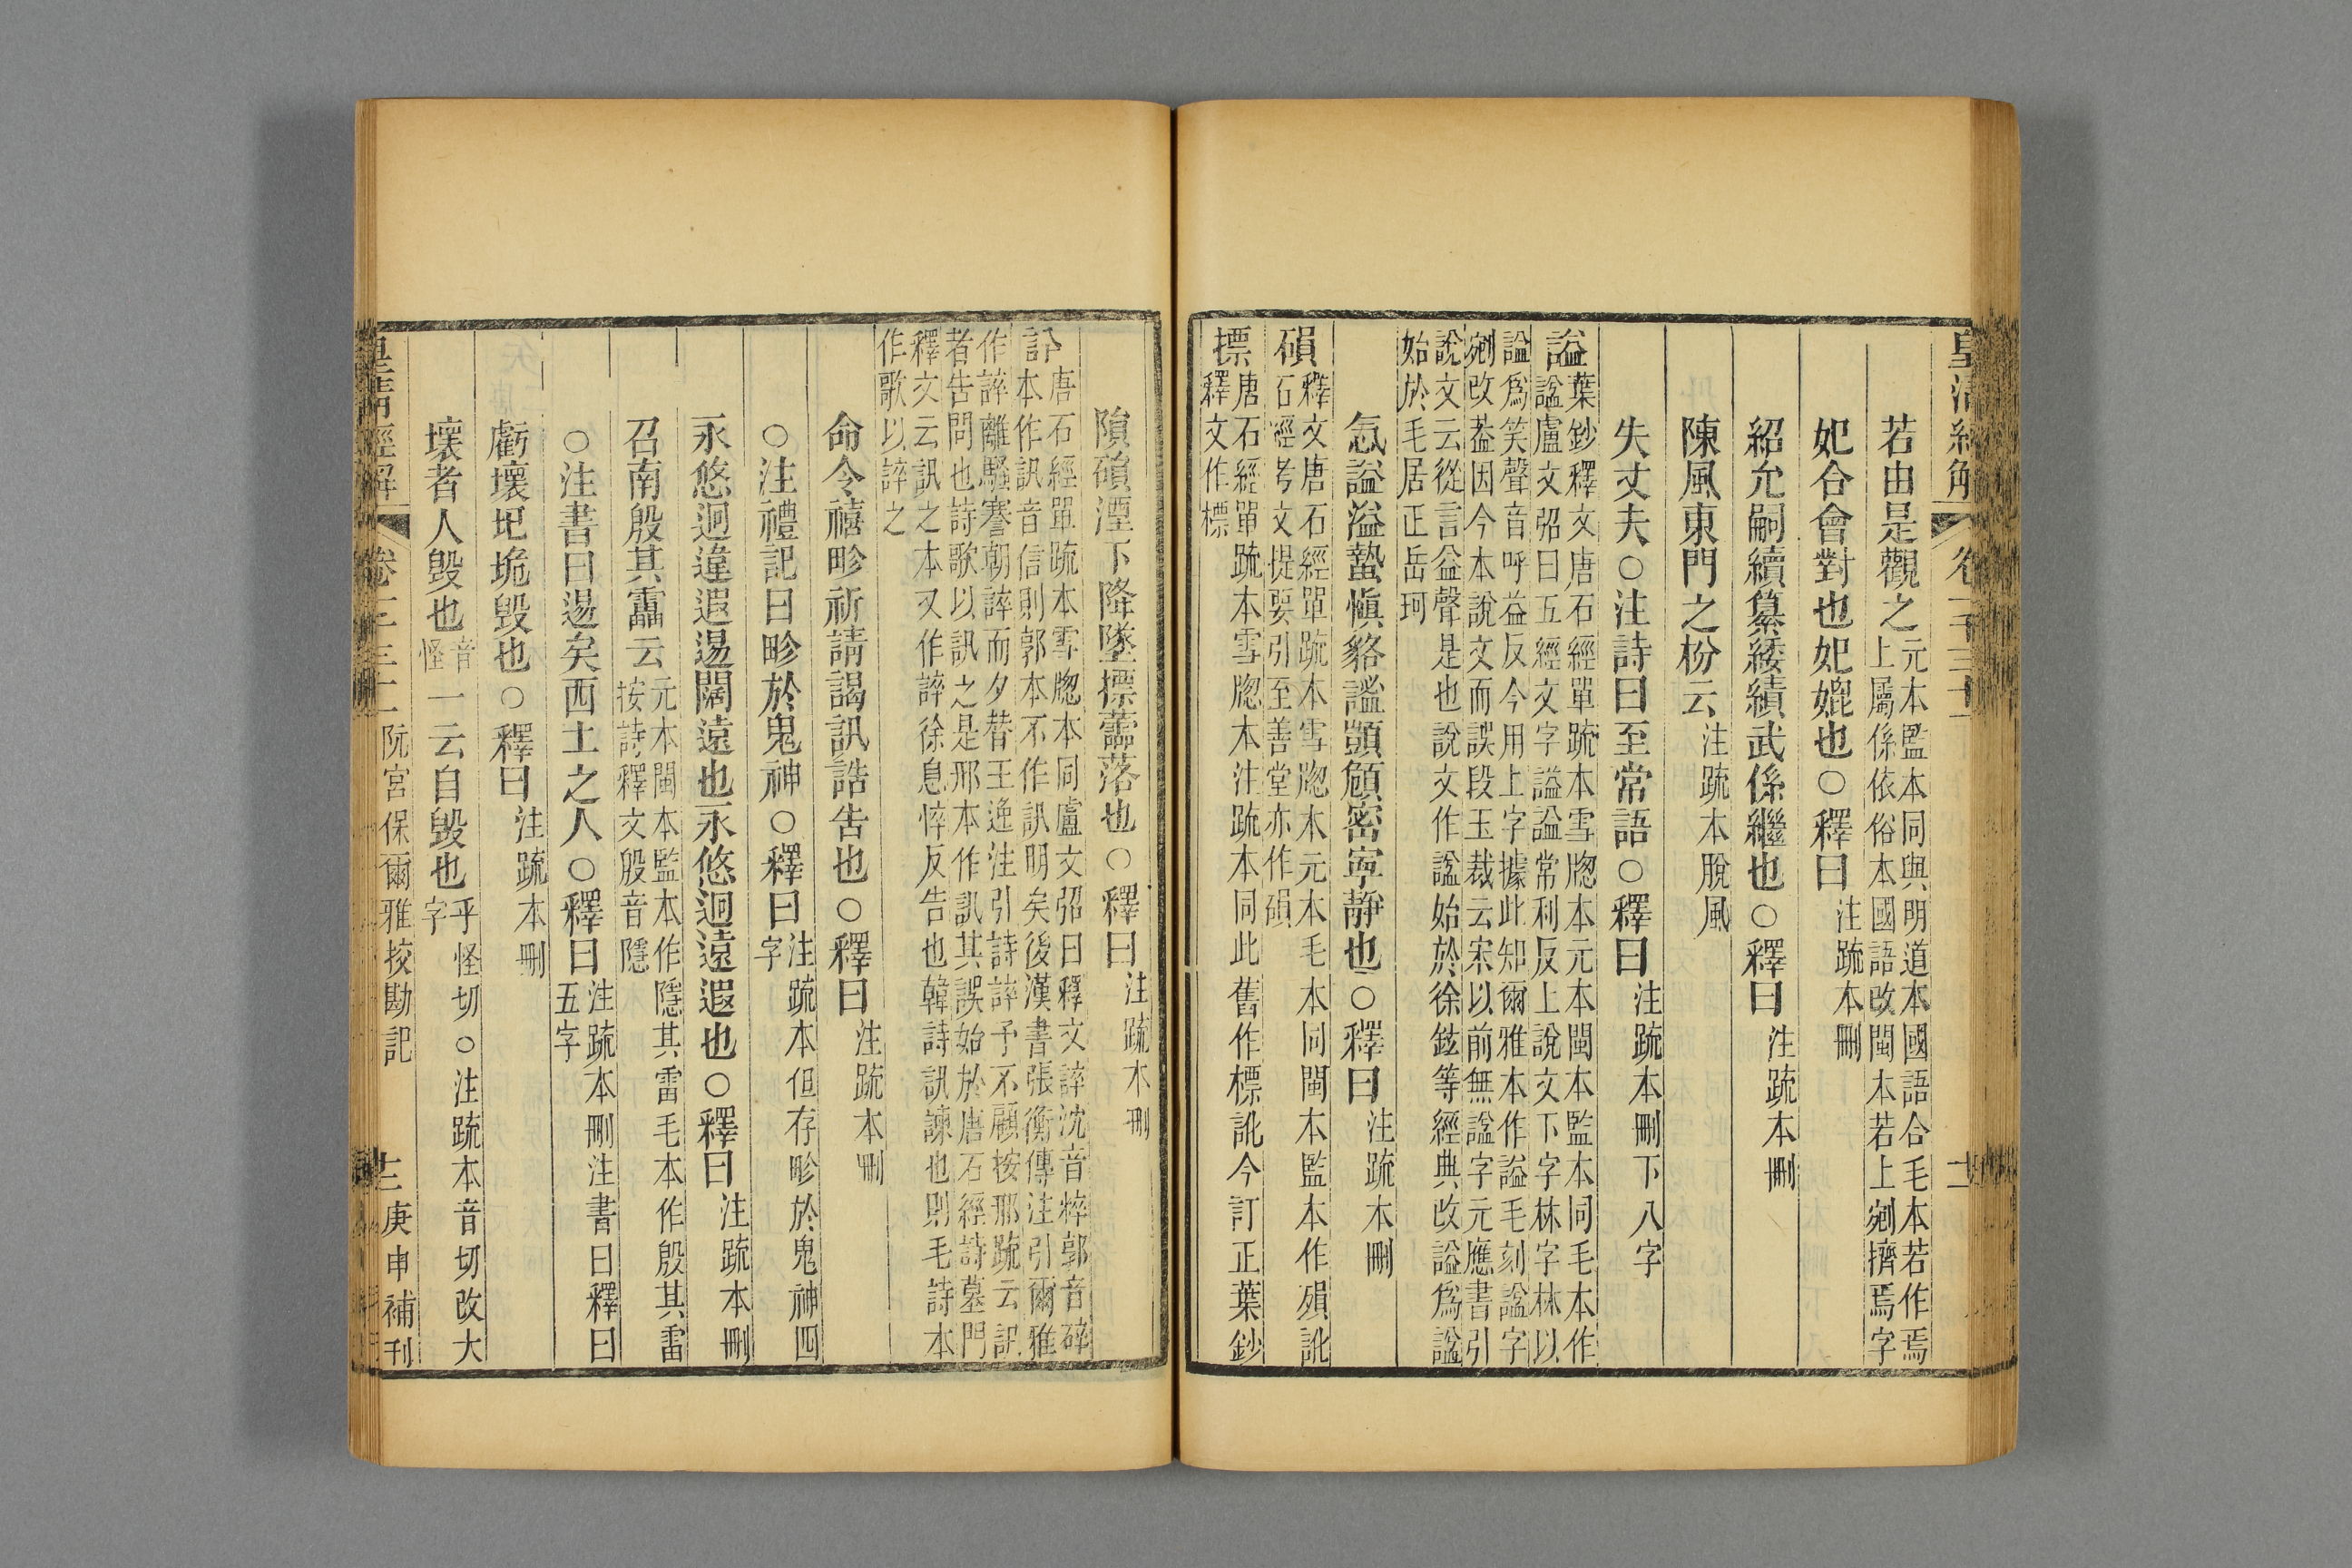 皇清經解 卷一千三十一 十二
若由是觀之元本監本同與明道本國語合毛本若作焉
上屬係依俗本國語改閩本若上剜擠焉字
妃合會對也妃媲也○釋曰注疏本刪
紹允嗣續纂緌績武係繼也○釋曰注疏本刪
陳風東門之枌云注疏本脫風
失丈夫○注詩曰至常語○釋曰注疏本刪下八字
謚葉鈔釋文唐石經單疏本雪牕本元本閩本監本同毛本作
諡盧文弨曰五經文字謚謚常利反上說文下字林字林以
謚爲笑聲音呼益反今用上字據此知爾雅本作謚毛刻諡字
剜改葢因今本說文而誤段玉裁云宋以前無諡字元應書引
說文云從言益聲是也說文作諡始於徐鉉等經典改謚爲諡
始於毛居正岳珂
忥謐溢蟄愼貉謐顗頠密寧靜也○釋曰注疏本刪
磒釋文唐石經單疏本雪牕本元本毛本同閩本監本作殞訛
石經考文提要引至善堂亦作磒
摽唐石經單疏本雪牕本注疏本同此舊作標訛今訂正葉鈔
釋文作標
隕磒湮下降墜摽蘦落也○釋曰注疏本刪
訃唐石經單疏本雪牕本同盧文弨曰釋文誶沈音粹郭音碎
本作訊音信則郭本不作訊明矣後漢書張衡傳注引爾雅
作誶離騷謇朝誶而夕替王逸注引詩誶予不顧按邢疏云訊
者告問也詩歌以訊之是邢本作訊其誤始於唐石經詩墓門
釋文云訊之本又作誶徐息悴反告也韓詩訊諫也則毛詩本
作歌以誶之
命令禧畛祈請謁訊誥告也○釋曰注疏本刪
○注禮記曰畛於鬼神○釋曰注疏本但存畛於鬼神四
字
永悠迥違遐逷闊遠也永悠迥遠遐也○釋曰注疏本刪
召南殷其靁云元本閩本監本作隱其雷毛本作殷其雷
按詩釋文殷音隱
○注書曰逷矣西土之人○釋曰注疏本刪注書曰釋曰
五字
虧壞圮垝毀也○釋曰注疏本刪
壞者人毀也音怪一云自毀也乎怪切○注疏本音切改大
字
皇清經解 卷一千三十一 阮宮保爾雅挍勘記 十二 庚申補刊